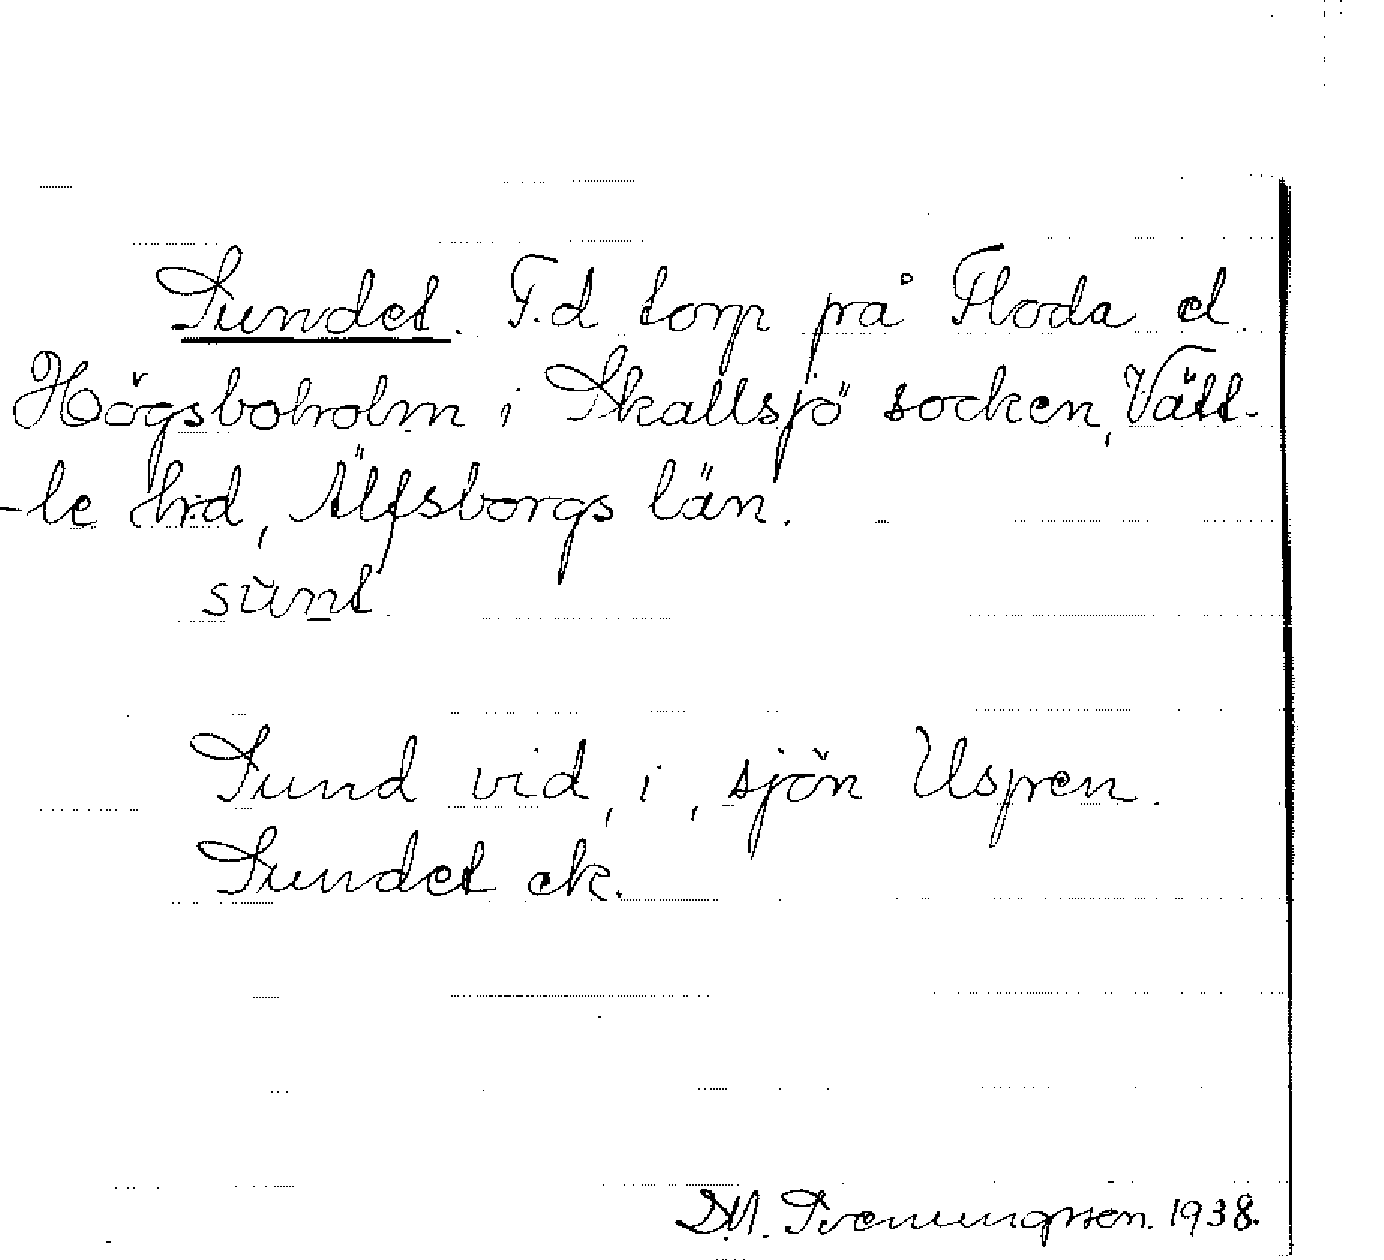 Sundet. F.d torp på Floda el.
Högsboholm i Skallsjö socken, Vätt-
-le hrd, Älfsborgs län.
sunt
Sund vid, i, sjön Uspen.
Sundet ek.
D.M. Sveningsson. 1938.